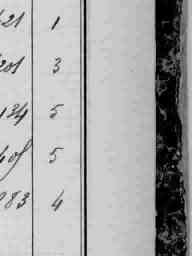 21 1
201 3
134 5
5
983 4